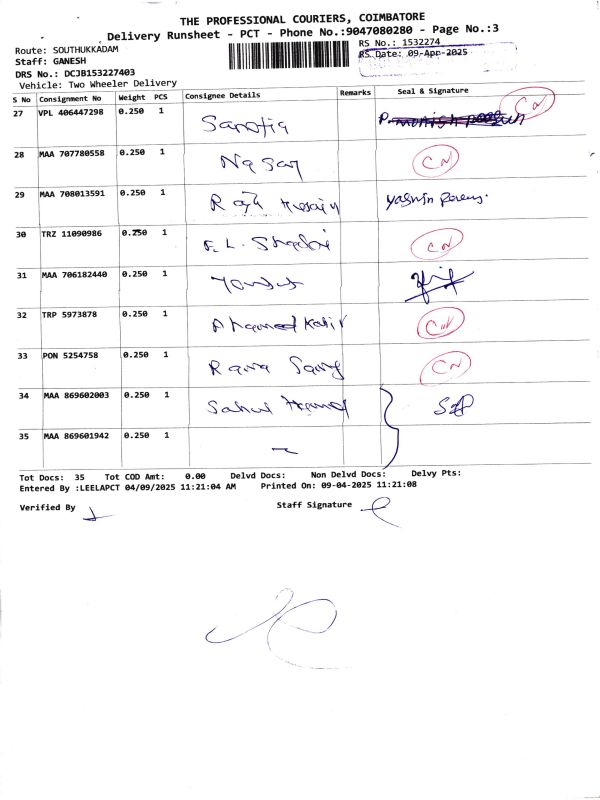 THE PROFESSIONAL COURIERS, COIMBATORE
Delivery Runsheet - PCT - Phone No.:9047080280 - Page No.:3
Route: SOUTHUKKADAM
Staff: GANESH
DRS No.: DCJB153227403
Vehicle: Two Wheeler Delivery
RS No.: 1532274
RS Date: 09-Apr-2025
S No Consignment No Weight PCS Consignee Details Remarks Seal & Signature
27 VPL 406447298 0.250 1 CN
28 MAA 707780558 0.250 1 Nasar CN
29 MAA 708013591 0.250 1 Yasmin
30 TRZ 11090986 0.250 1 CN
31 MAA 706182440 0.250 1
32 TRP 5973878 0.250 1 Ahamed Kabir CN
33 PON 5254758 0.250 1 Rama CN
34 MAA 869602003 0.250 1 Sahul Hameed
35 MAA 869601942 0.250 1
Tot Docs: 35 Tot COD Amt: 0.00 Delvd Docs: Non Delvd Docs: Delvy Pts:
Entered By :LEELAPCT 04/09/2025 11:21:04 AM Printed On: 09-04-2025 11:21:08
Verified By Staff Signature